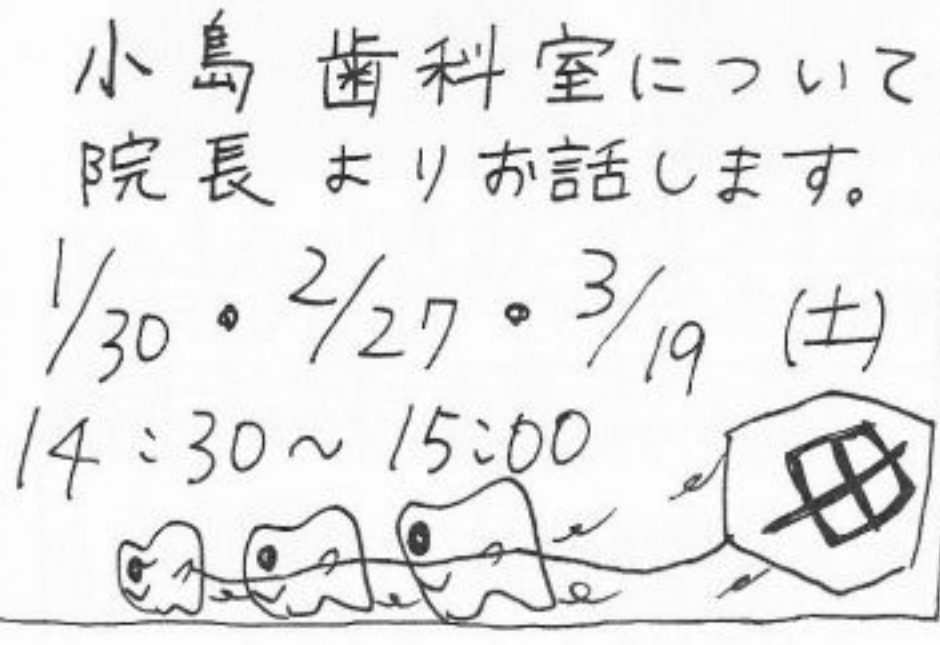 小島歯科室について
院長よりお話します。
1/30・2/27・3/19 (土)
14:30~15:00